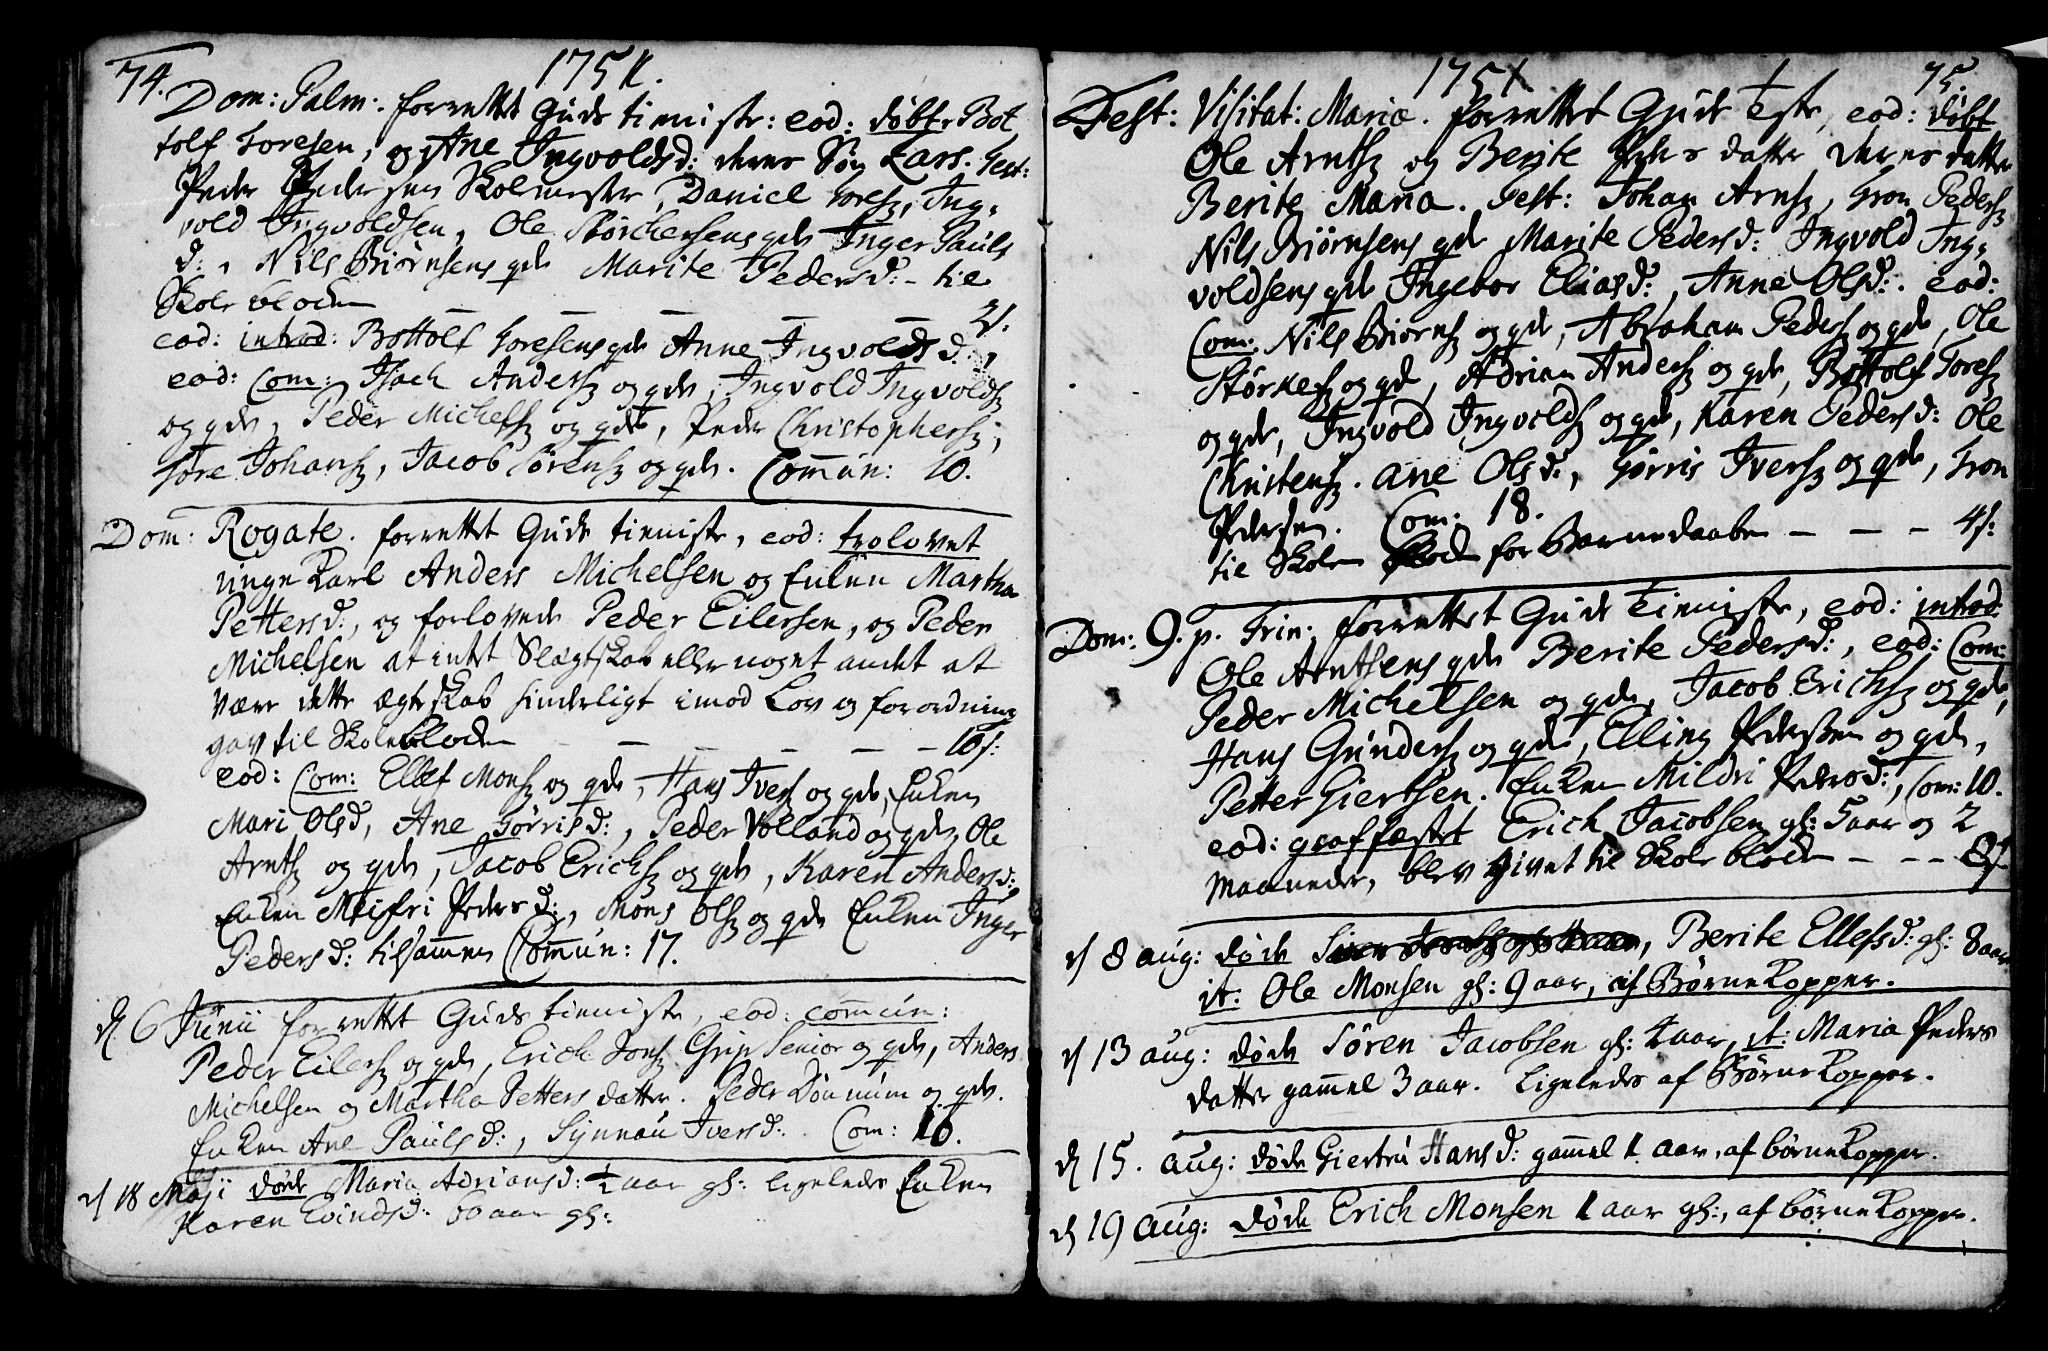 74. 1751.
Dom: Palm: forrettet Guds tieniste: eod: døbt Bot
tolf Toresen, og Ane Ingvoldsd: deres Søn Lars. Test:
Peder Pedersen Skolmester, Daniel Toresz, Ing-
vold Ingvoldsen, Ole Størchersens qde Inger Pauls
d:, Nils Biørnsens qde Marite Pedersd: - til
Skole bloken — — — — — 2s.
eod: introd: Bottolf Toresens qde Anne Ingvoldsd:,
eod: Com: Isach Andersz og qde, Ingvold Ingvoldsz
og qde, Peder Michelsz og qde, Peder Christophersz,
Tore Johansz, Jacob Sørensz og qde. Com̄un: 10.
Dom: Rogate. forrettet Guds tieniste, eod: trolovet
unge Karl Anders Michelsen og Enken Martha
Pettersd:, og forlovede Peder Eilersen, og Peder
Michelsen at intet Slægtskab eller noget andet at
være dette ægteskab hinderligt imod Lov og forordning
gav til Skolebloken — — — — 16s:
eod: Com: Ellef Monsz og qde, Hans Iversz og qde, Enken
Mari Olsd, Ane Gørrisd:, Peder Volland og qde, Ole
Arntsz og qde, Jacob Erichsz og qde, Karen Andersd:
Enken Pedersd:, Mons Olsz og qde Enken Inger
Pedersd: tilsam̄en Com̄un: 17.
d 6 Junii forrettet Guds tieniste, eod: com̄un:
Peder Eilersz og qde, Erich Jonsz Grip Senior og qde, Anders
Michelsen og Martha Petters datter. Peder Dønnum og qde.
Enken Ane Paulsd:, Synnau Iversd:. Com: 16.
d 18 Maji døde Maria Adriansd: ½ aar gl: ligeledes Enken
Karen Evindsd: 60 aar gl:
1751 75.
Fest: Visitat: Mariæ. forrettet Guds Tste, eod: døbt
Ole Arntsz og Berite Peders datter deres datter
Berite Maria. Test: Johan Arnsz, Tron Pedersz
Nils Biørnsens qde Marite Pedersd: Ingvold Ing-
voldsens qde Ingebor Eliasd:, Anne Olsd:. eod:
Com: Nils Biørnsz og qde, Abraham Pedersz og qde, Ole
Størkesz og qd, Adrian Andersz og qde, Bottolf Toresz
og qde, Ingvold Ingvoldsz og qde, Karen Pedersd: Ole
Christensz. Ane Olsd:, Gørris Iversz og qde, Tron
Pedersen. Com: 18.
til Skole blok for Barnedaaben — — — 4s:
Dom: 9. p. Trin: forrettet Guds Tieniste, eod: introd:
Ole Arntsens qde Berite Pedersd:, eod: Com:
Peder Michelsen og qde, Jacob Erichsz og qde,
Hans Gundersz og qde, Elling Pedersen og qde,
Petter Giertsen. Enken Mildri Pedersd:, Com: 10.
eod: graffæstet Erich Jacobsen gl: 5 aar og 2
Maaneder, blev givet til Skole bloken — — — 8s
d 8 aug: døde Berite Ellefsd: gl: 8 aar
it: Ole Monsen gl: 9 aar, af Børne Kopper.
d 13 aug: døde Søren Jacobsen gl: ½ aar, it: Maria Peders
datter gam̄el 3 aar. Ligeledes af Børne Kopper.
d 15. aug: døde Giertru Hansd: gam̄el 1 aar, af børne Kopper.
d 19 aug: døde Erich Monsen 1 aar gl:, af børne Kopper.